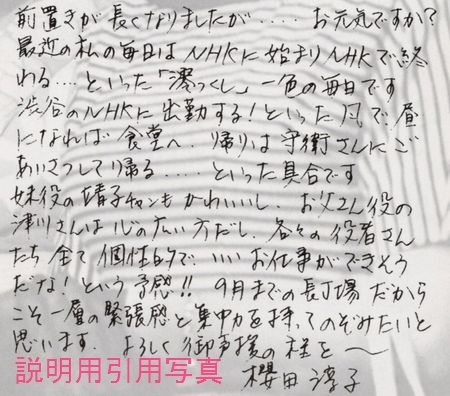 前置きが長くなりましたが‥‥お元気ですか?
最近の私の毎日はNHKに始まりNHKで終
わる‥‥といった「澪つくし」一色の毎日です
渋谷のNHKに出勤する!といった風で、昼
になれば食堂へ、帰りは守衛さんにご
あいさつして帰る‥‥‥といった具合です
妹役の靖子チャンもかわいいし、お父さん役の
津川さんは心の広い方だし、各々の役者さん
たち全て個性的で、いいお仕事ができそう
だな!という予感!! 9月までの長丁場だから
こそ一層の緊張感と集中力を持ってのぞみたいと
思います. よろしく御声援の程を〜
櫻田淳子
説明用引用写真